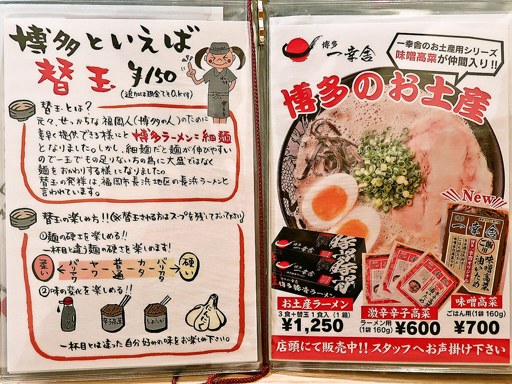 博多といえば
替玉 ¥150
(追加は現金でもO.K.です)
替玉とは?
元々、せっかちな福岡人(博多の人)のために
素早く提供できる様にと博多ラーメン=細麺
となりました。しかし、細麺だと麺が伸びやすい
ので一玉でその足りない方の為に大盛ではなく
麺をおかわりする様になりました。
替玉の発祥は、福岡市長浜地区の長浜ラーメンと
言われています。
替玉の楽しみ方!!(※替玉されるお方はスープを残しておいて下さい)
①麺の硬さを楽しめる!!
一杯目と違う麺の硬さを楽しめます!
柔い
バリヤワ
ヤワ
普通
カタ
バリカタ
硬い
②味の変化を楽しめる!!
辛子高菜
一杯目とは違った自分好みの味をお楽しみ下さい。
博多
一幸舎
一幸舎のお土産用シリーズ
味噌高菜が仲間入り!!
博多のお土産
New
一幸舎
味噌高菜
油いため
お土産ラーメン
3食+替玉1食入(1箱)
¥1,250
激辛辛子高菜
ラーメン用
(1袋160g)
¥600
味噌高菜
ごはん用(1袋160g)
¥700
店頭にて販売中!!スタッフへお声掛け下さい